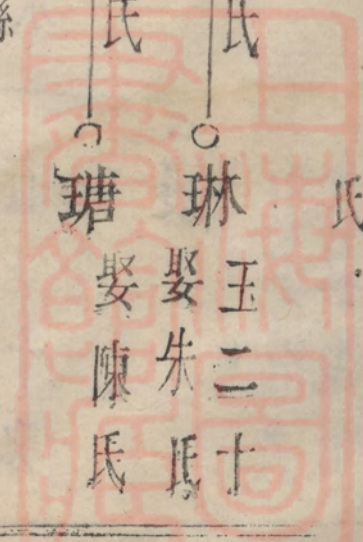 氏
氏
琳
玉二十
娶朱氏
氏
瑭
娶陳氏